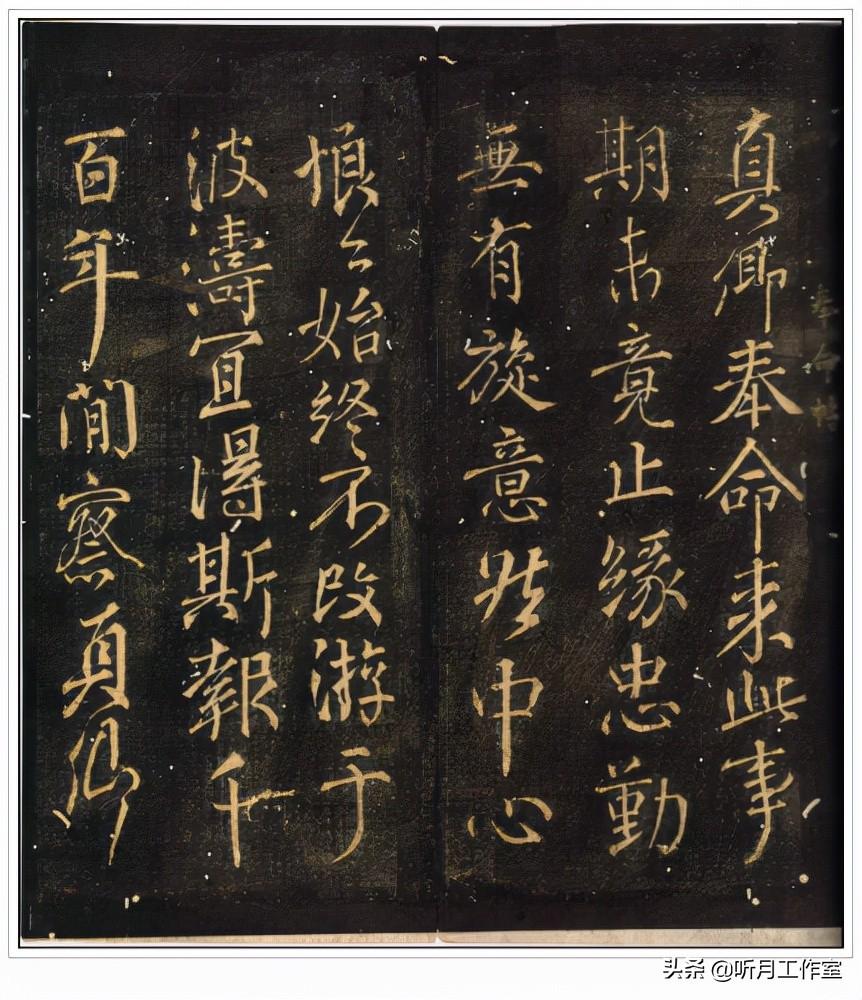 真卿奉命来此事
期未竟止緣忠勤
無有旋意然中心
悢々始終不改游于
波濤宜得斯報千
百年間察真卿
奉命帖
头条 @听月工作室